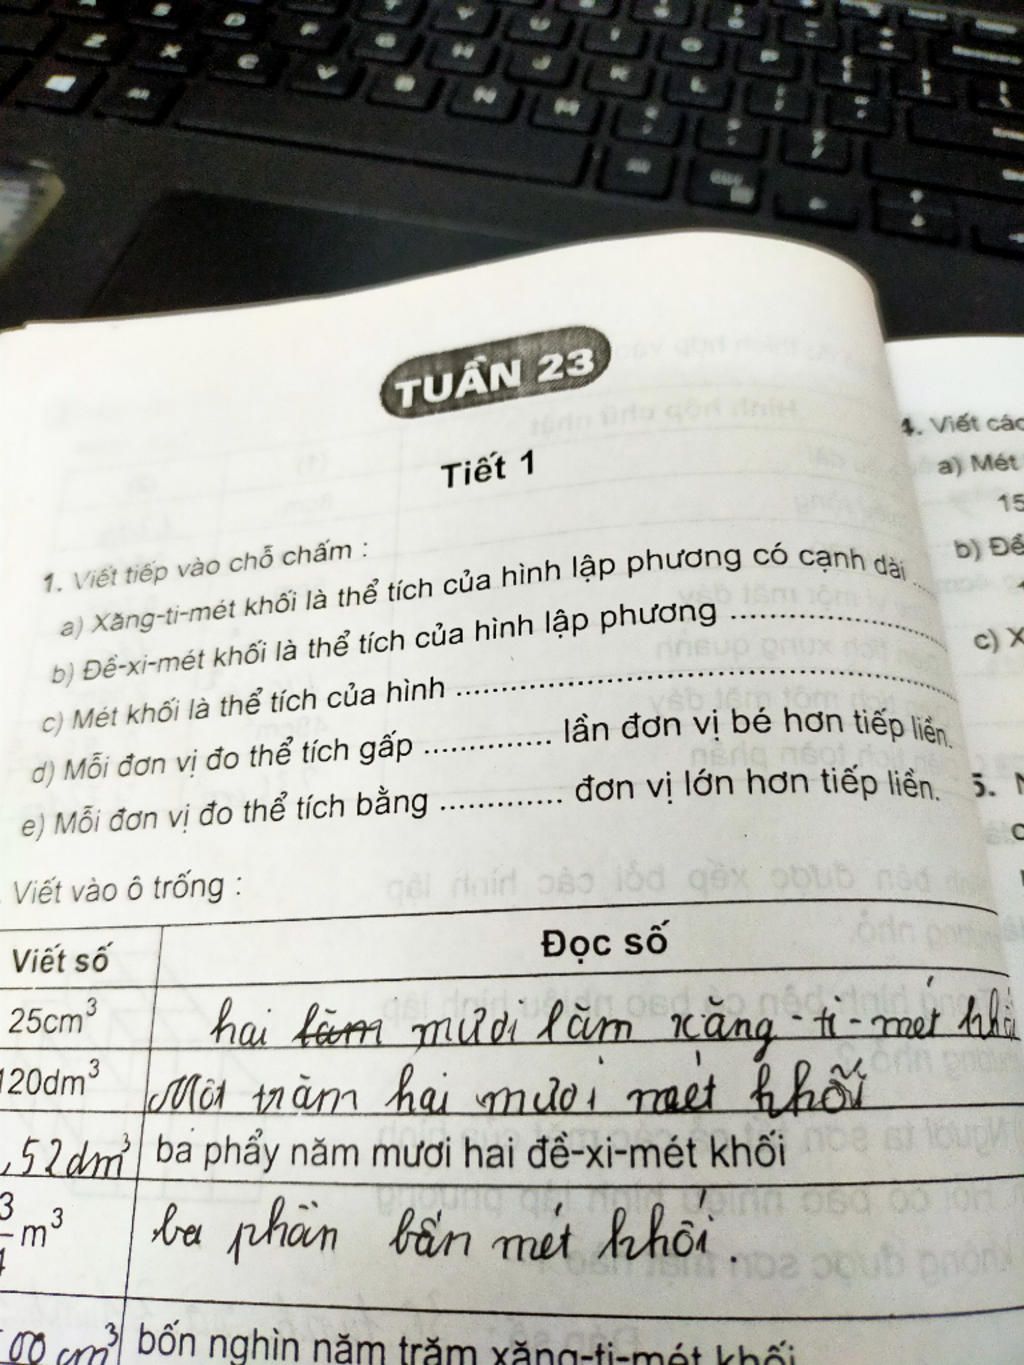 TUẦN 23
Tiết 1
1. Viết tiếp vào chỗ chấm :
a) Xăng-ti-mét khối là thể tích của hình lập phương có cạnh dài ...
b) Đề-xi-mét khối là thể tích của hình lập phương ....................
c) Mét khối là thể tích của hình ..............................
d) Mỗi đơn vị đo thể tích gấp ............. lần đơn vị bé hơn tiếp liền.
e) Mỗi đơn vị đo thể tích bằng ............. đơn vị lớn hơn tiếp liền.
Viết vào ô trống :
Viết số Đọc số
25cm³ hai lăm mươi lăm xăng-ti-mét khối
120dm³ Một trăm hai mươi mét khối
,52dm³ ba phẩy năm mươi hai đề-xi-mét khối
3/4 m³ ba phần bốn mét khối.
00 cm³ bốn nghìn năm trăm xăng-ti-mét khối
4. Viết các
a) Mét
15
b) Đề
c) X
5.